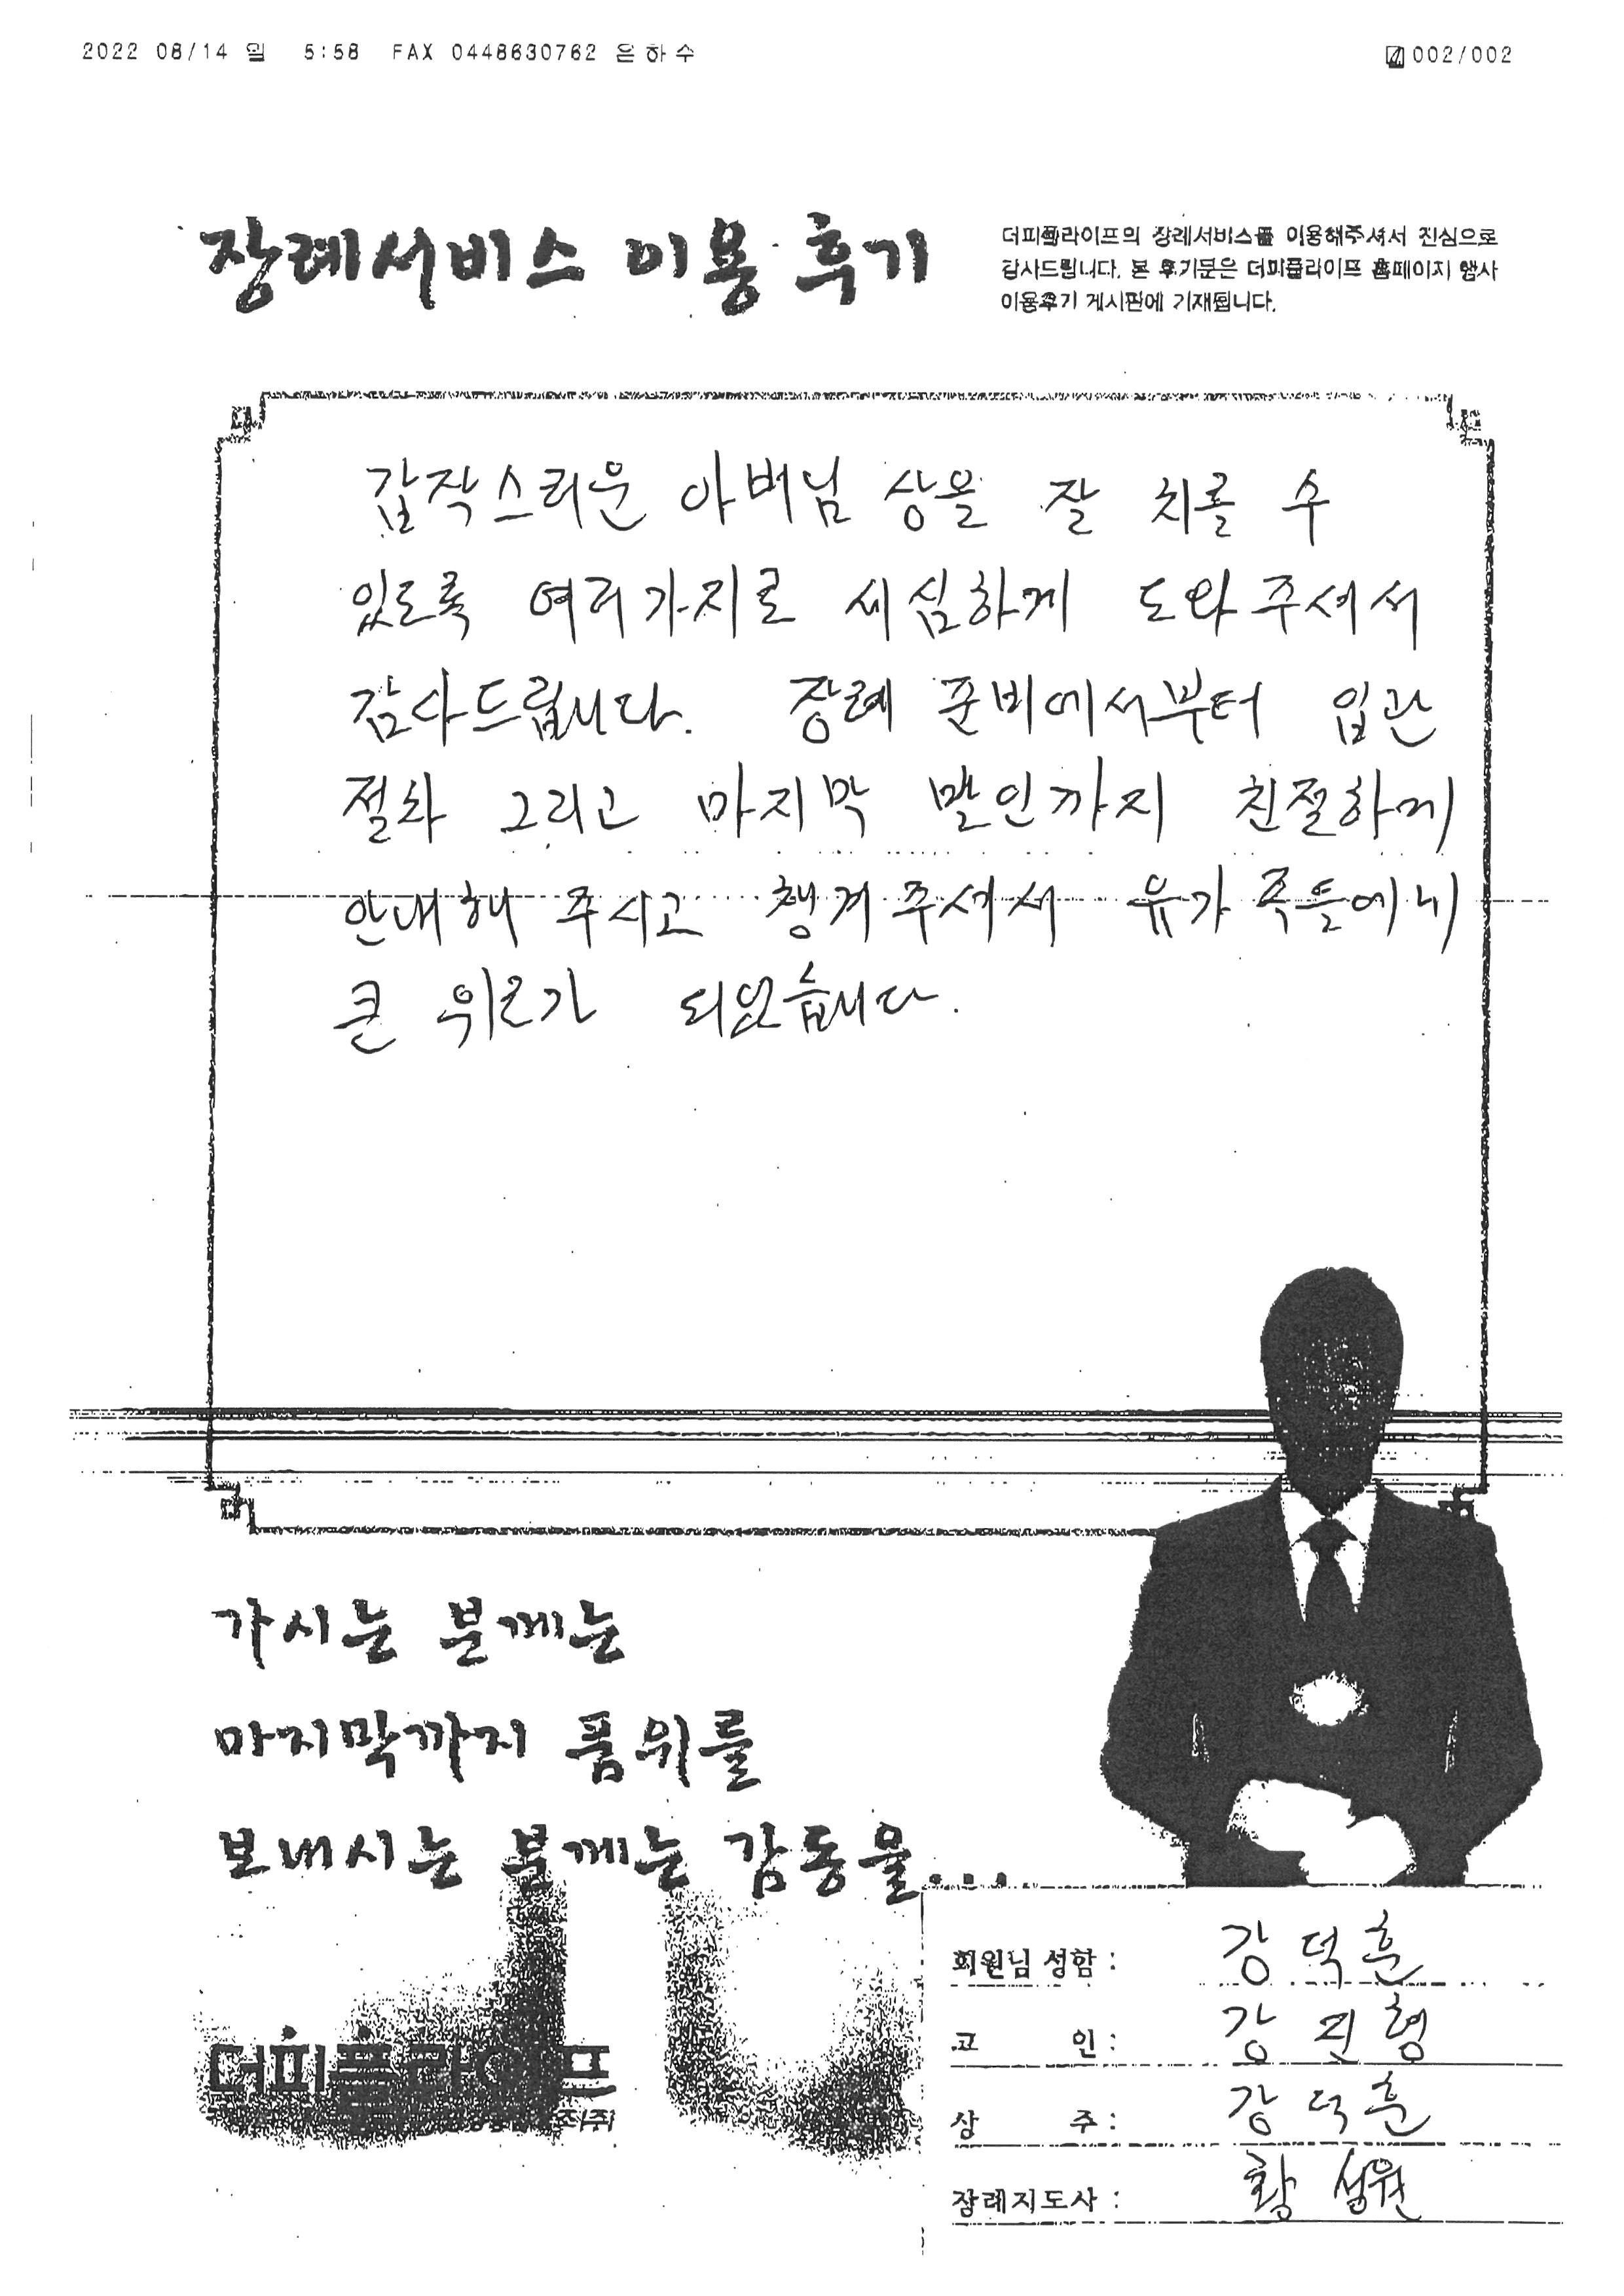 2022 08/14 일 5:58 FAX 0448630762 은하수 002/002
장례서비스 이용 후기
더피플라이프의 장례서비스를 이용해주셔서 진심으로
감사드립니다. 본 후기문은 더피플라이프 홈페이지 행사
이용후기 게시판에 기재됩니다.
갑작스러운 아버님 상을 잘 치룰 수
있도록 여러가지로 세심하게 도와주셔서
감사드립니다. 장례 준비에서부터 입관
절차 그리고 마지막 발인까지 친절하게
안내해 주시고 챙겨주셔서 유가족들에게
큰 위로가 되었습니다.
가시는 분께는
마지막까지 품위를
보내시는 분께는 감동을...
더피플라이프
회원님 성함 : 강덕훈
고 인 : 강진형
상 주 : 강덕훈
장례지도사 : 황성원